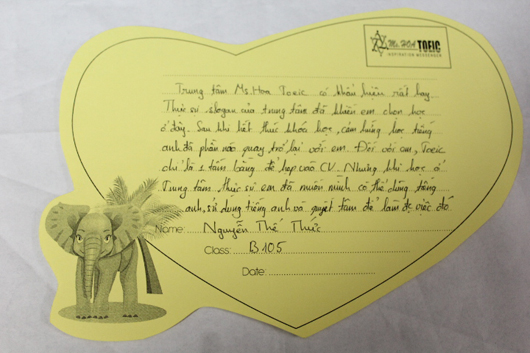 Ms.HOA TOEIC
INSPIRATION MESSENGER
Trung tâm Ms.Hoa Toeic có khẩu hiệu rất hay.
Thực sự slogan của trung tâm đã khiến em chọn học
ở đây. Sau khi kết thúc khóa học, cảm hứng học tiếng
anh đã phần nào quay trở lại với em. Đối với em, Toeic
chỉ là 1 tấm bằng để kẹp vào CV. Nhưng khi học ở
Trung tâm thực sự em đã muốn mình có thể dùng tiếng
anh, sử dụng tiếng anh và quyết tâm để làm đc việc đó
Name: Nguyễn Thế Thức
Class: B105
Date: